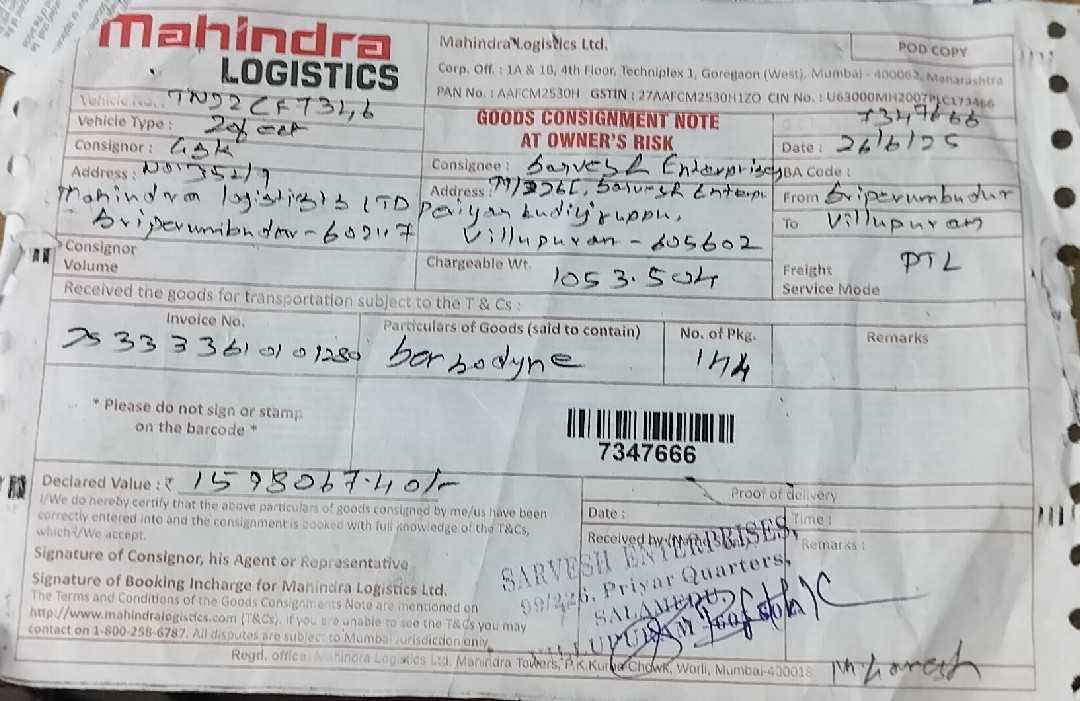 Mahindra
LOGISTICS
Mahindra Logistics Ltd.
POD COPY
Corp. Off. : 1A & 1B, 4th Floor, Techniplex 1, Goregaon (West), Mumbai - 400062, Maharashtra
PAN No. : AAFCM2530H GSTIN : 27AAFCM2530H1ZO CIN No. : U63000MH2007PLC173466
Vehicle No. : TN22CF7346
GOODS CONSIGNMENT NOTE
AT OWNER'S RISK
7347666
Vehicle Type : 20feet
Date : 26/6/25
Consignor : Gsk
Consignee : Sarvesh Enterprises
BA Code :
Address : No 352/9
Mahindra logistics LTD
Sriperumbudur - 602117
Address : 99/226C, Sarvesh Enterp
Periyar kudiyiruppu,
Villupuram - 605602
From Sriperumbudur
To Villupuram
Consignor
Volume
Chargeable Wt. 1053.504
Freight
Service Mode
PTL
Received the goods for transportation subject to the T & Cs :
Invoice No.
Particulars of Goods (said to contain)
No. of Pkg.
Remarks
253333610101280
144
* Please do not sign or stamp
on the barcode *
7347666
Declared Value : ₹ 1598067.40/-
I/We do hereby certify that the above particulars of goods consigned by me/us have been
correctly entered into and the consignment is booked with full knowledge of the T&Cs,
which I/We accept.
Signature of Consignor, his Agent or Representative
Signature of Booking Incharge for Mahindra Logistics Ltd.
The Terms and Conditions of the Goods Consignments Note are mentioned on
http://www.mahindralogistics.com (T&Cs). If you are unable to see the T&Cs you may
contact on 1-800-258-6787. All disputes are subject to Mumbai Jurisdiction only
Proof of delivery
Date :
Time :
Received by
Remarks :
SARVESH ENTERPRISES,
99/226, Priyar Quarters,
SALAMEDU,
VILLUPURAM
Regd. office : Mahindra Logistics Ltd. Mahindra Towers, P.K.Kurne Chowk, Worli, Mumbai-400018